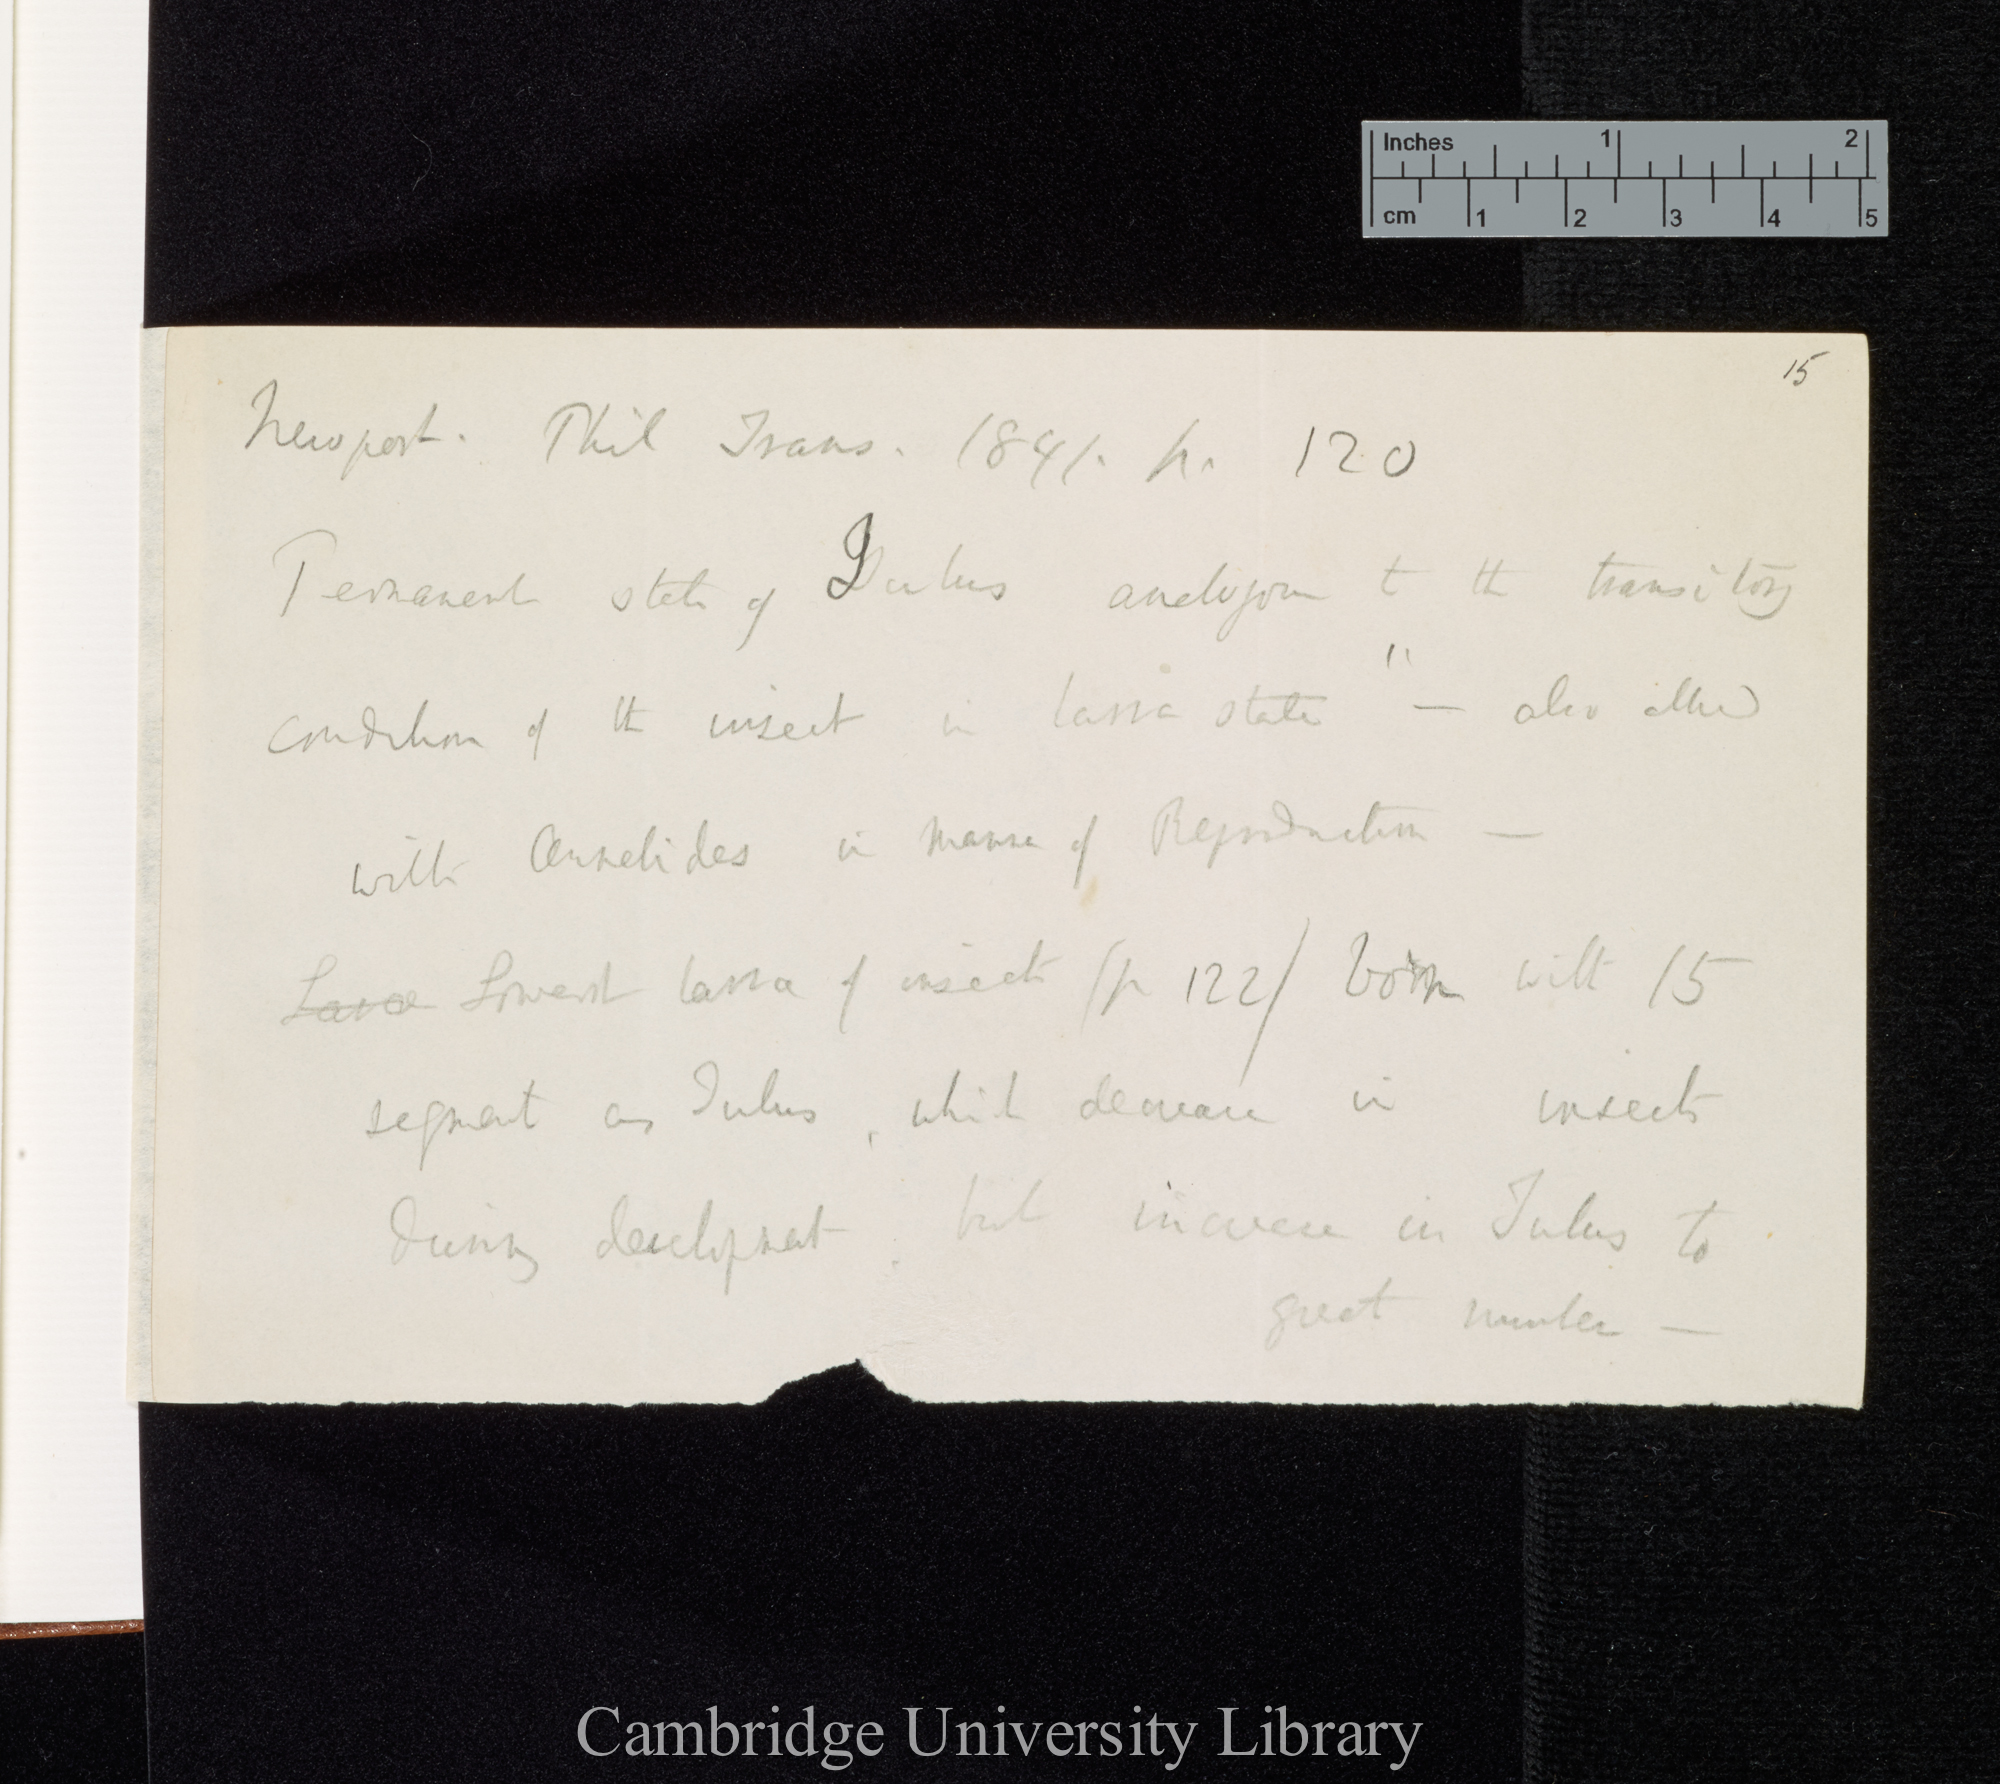 Inches 1 2
cm 1 2 3 4 5
15
Newport. Phil Trans. 1841. p. 120
Permanent state of Iulus analogous to the transitory
condition of the insect in larva state" — also allied
with Annelides in manner of Reproduction —
Larva Lowest larva of insects (p 122) born with 15
segment as Iulus, which decrease in insects
during development, but increase in Iulus to
great number —
Cambridge University Library